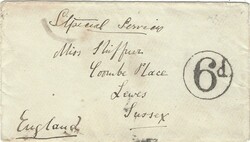 Special Service
Miss Shiffner
Coombe Place
Lewes
Sussex
England
6d.